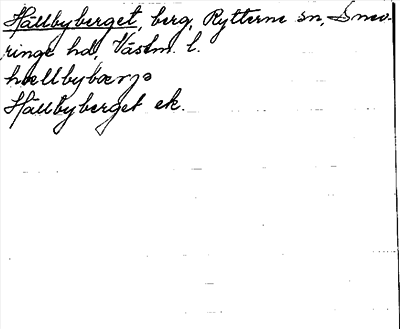 Hällbyberget, berg, Rytterne sn, Snev-
ringe hd, Västm. l.
hællbybærjə
Hällbyberget ek.